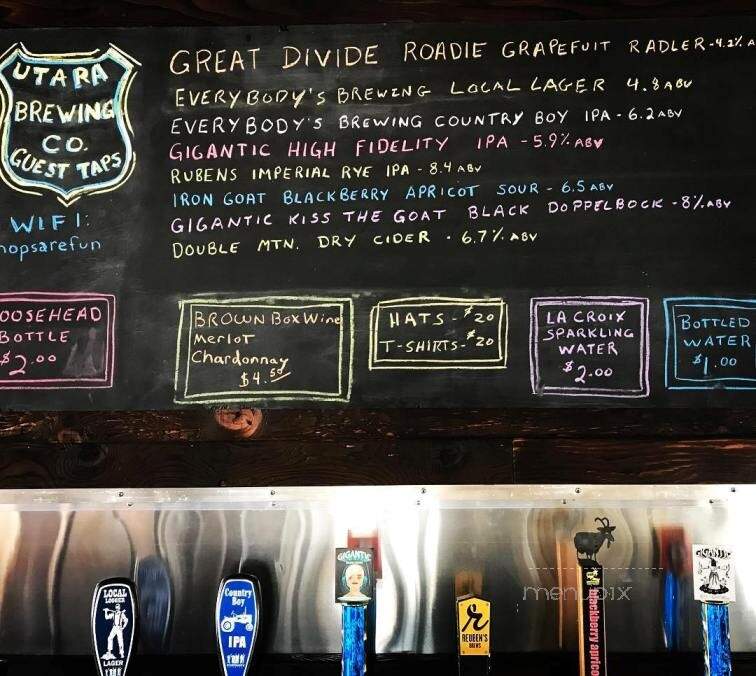 UTARA
BREWING
CO.
GUEST TAPS
WIFI:
hopsarefun
GREAT DIVIDE ROADIE GRAPEFUIT RADLER-4.2% A
EVERYBODY'S BREWING LOCAL LAGER 4.8 ABV
EVERYBODY'S BREWING COUNTRY BOY IPA - 6.2 ABV
GIGANTIC HIGH FIDELITY IPA - 5.9% ABV
RUBENS IMPERIAL RYE IPA - 8.4 ABV
IRON GOAT BLACKBERRY APRICOT SOUR - 6.5 ABV
GIGANTIC KISS THE GOAT BLACK DOPPELBOCK - 8% ABV
DOUBLE MTN. DRY CIDER - 6.7% ABV
OOSEHEAD
BOTTLE
$2.00
BROWN Box Wine
Merlot
Chardonnay
$4.50
HATS - $20
T-SHIRTS - $20
LA CROIX
SPARKLING
WATER
$2.00
BOTTLED
WATER
$1.00
LOCAL
LOGGER
LAGER
Country
Boy
IPA
GIGANTIC
R
REUBEN'S
BREWS
blackberry aprico
GIGANTIC
menupix